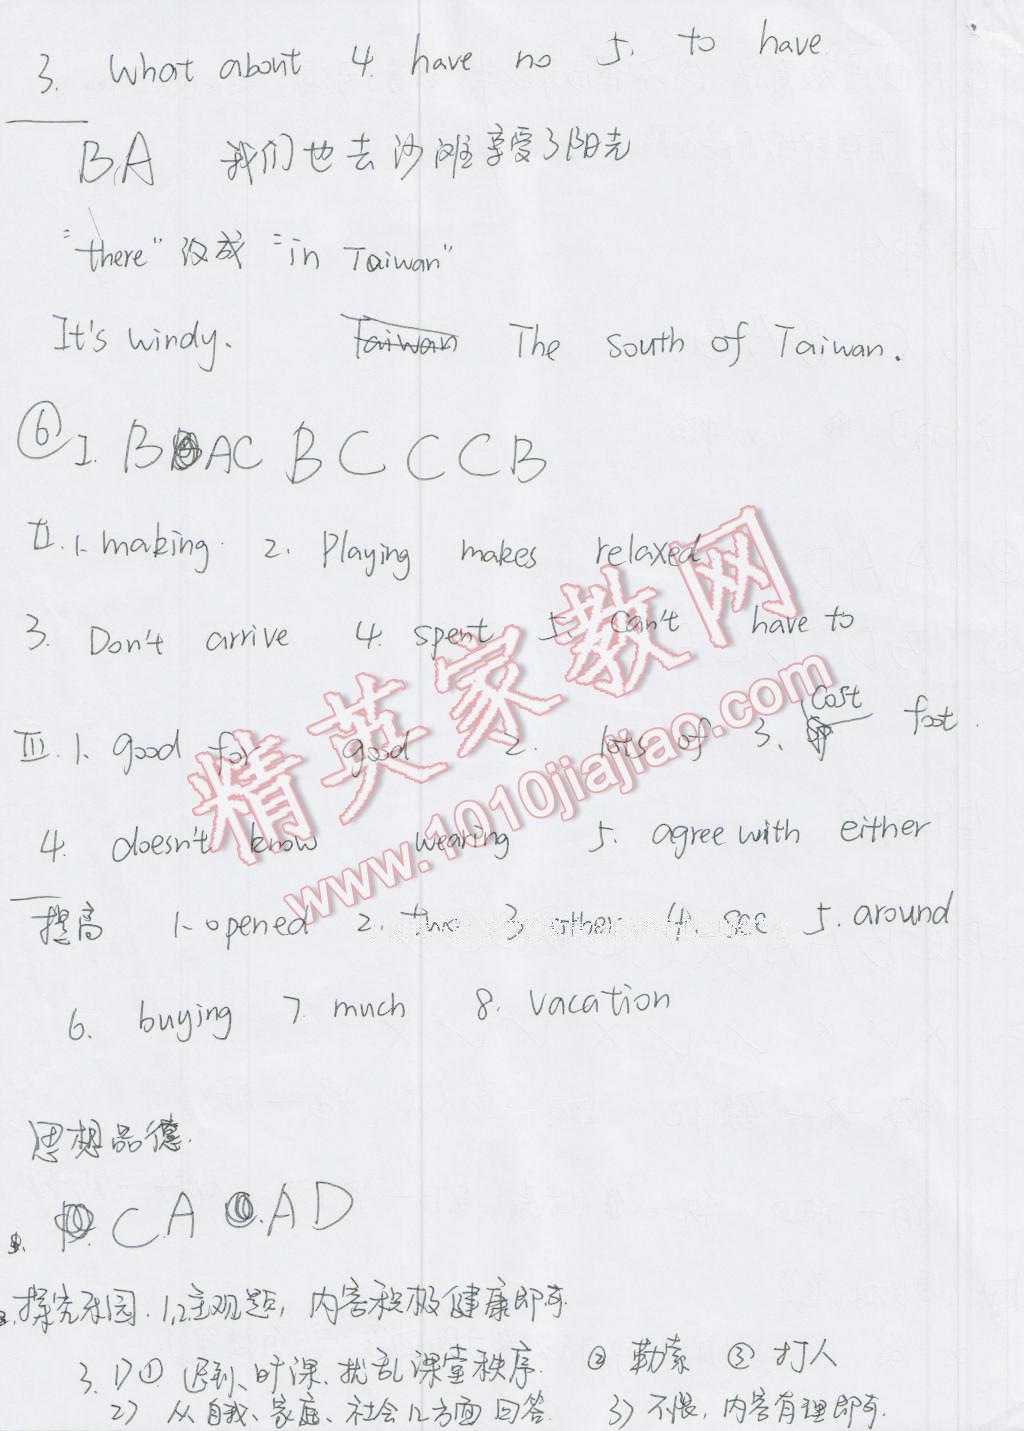 3. What about 4. have no 5. to have
B A 我们也去沙滩享受了阳光
"there" 改成 "in Taiwan"
It's windy. Taiwan The south of Taiwan.
⑥ I. B AC B C C C B
II. 1. making. 2. Playing makes relaxed
3. Don't arrive 4. spent 5. can't have to
III. 1. good for good 2. lots of 3. cost fast.
4. doesn't know wearing 5. agree with either
提高 1. opened 2. two 3. other 4. see 5. around
6. buying 7. much 8. vacation
思想品德.
C A . A D
探究乐园. 1,2主观题, 内容积极健康即可.
3. 1) ① 迟到、旷课、扰乱课堂秩序. ② 勒索 ③ 打人
2) 从自我、家庭、社会几方面回答. 3) 不惧, 内容有理即可.
精英家教网
www.1010jiajiao.com